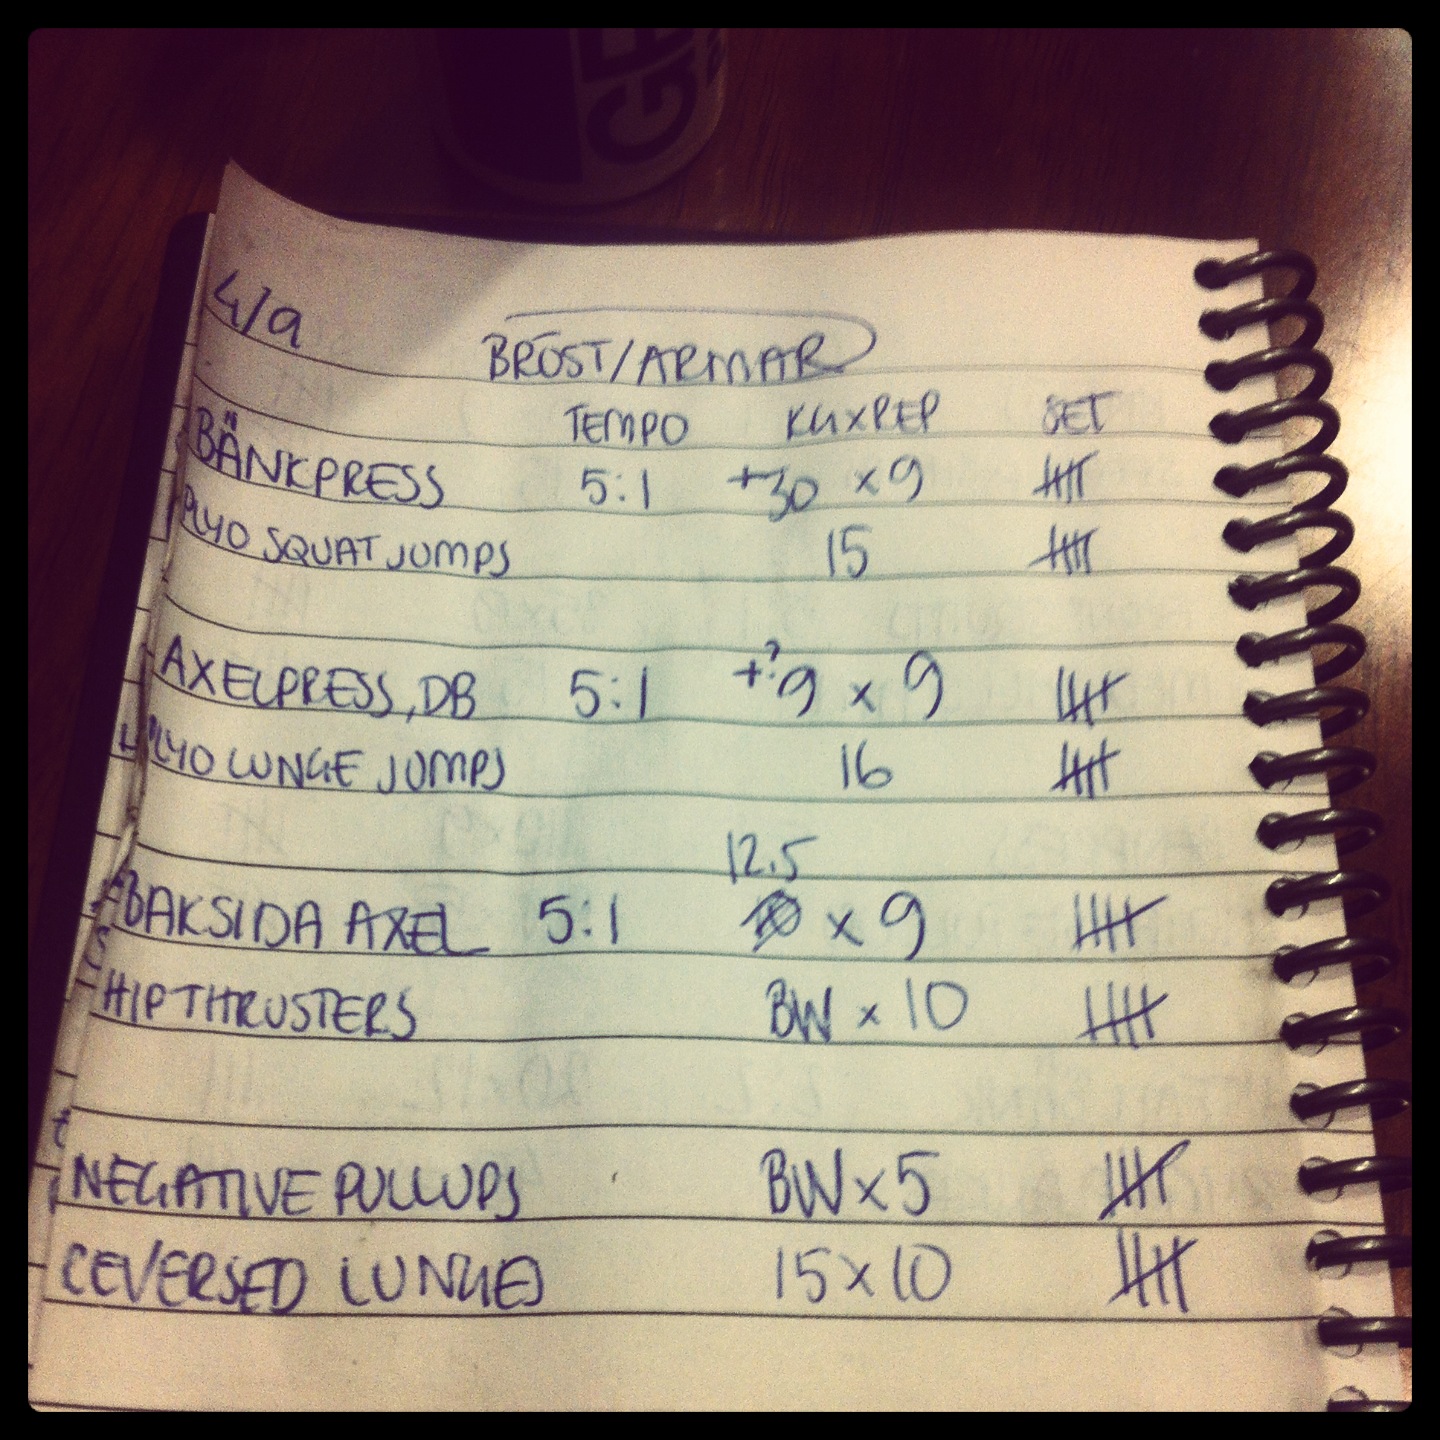 4/9
BRÖST/ARMAR
TEMPO KGXREP SET
BÄNKPRESS 5:1 +30 x 9
PLYO SQUAT JUMPS 15
AXELPRESS, DB 5:1 +? 9 x 9
PLYO LUNGE JUMPS 16
12.5
BAKSIDA AXEL 5:1 x 9
HIP THRUSTERS BW x 10
NEGATIVE PULLUPS BW x 5
REVERSED LUNGES 15 x 10